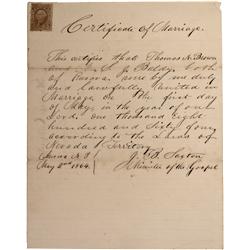 Certificate of Marriage.
This certifies that Thomas N. Brown
and S. J. Baldy both
of were by me duly
and lawfully united in
Marriage on the first day
of May in the year of our
Lord one thousand eight
hundred and Sixty four
according to the Laws of
Nevada Territory
N. T.
May 2nd 1864.
J. B. Saxton
Minister of the Gospel